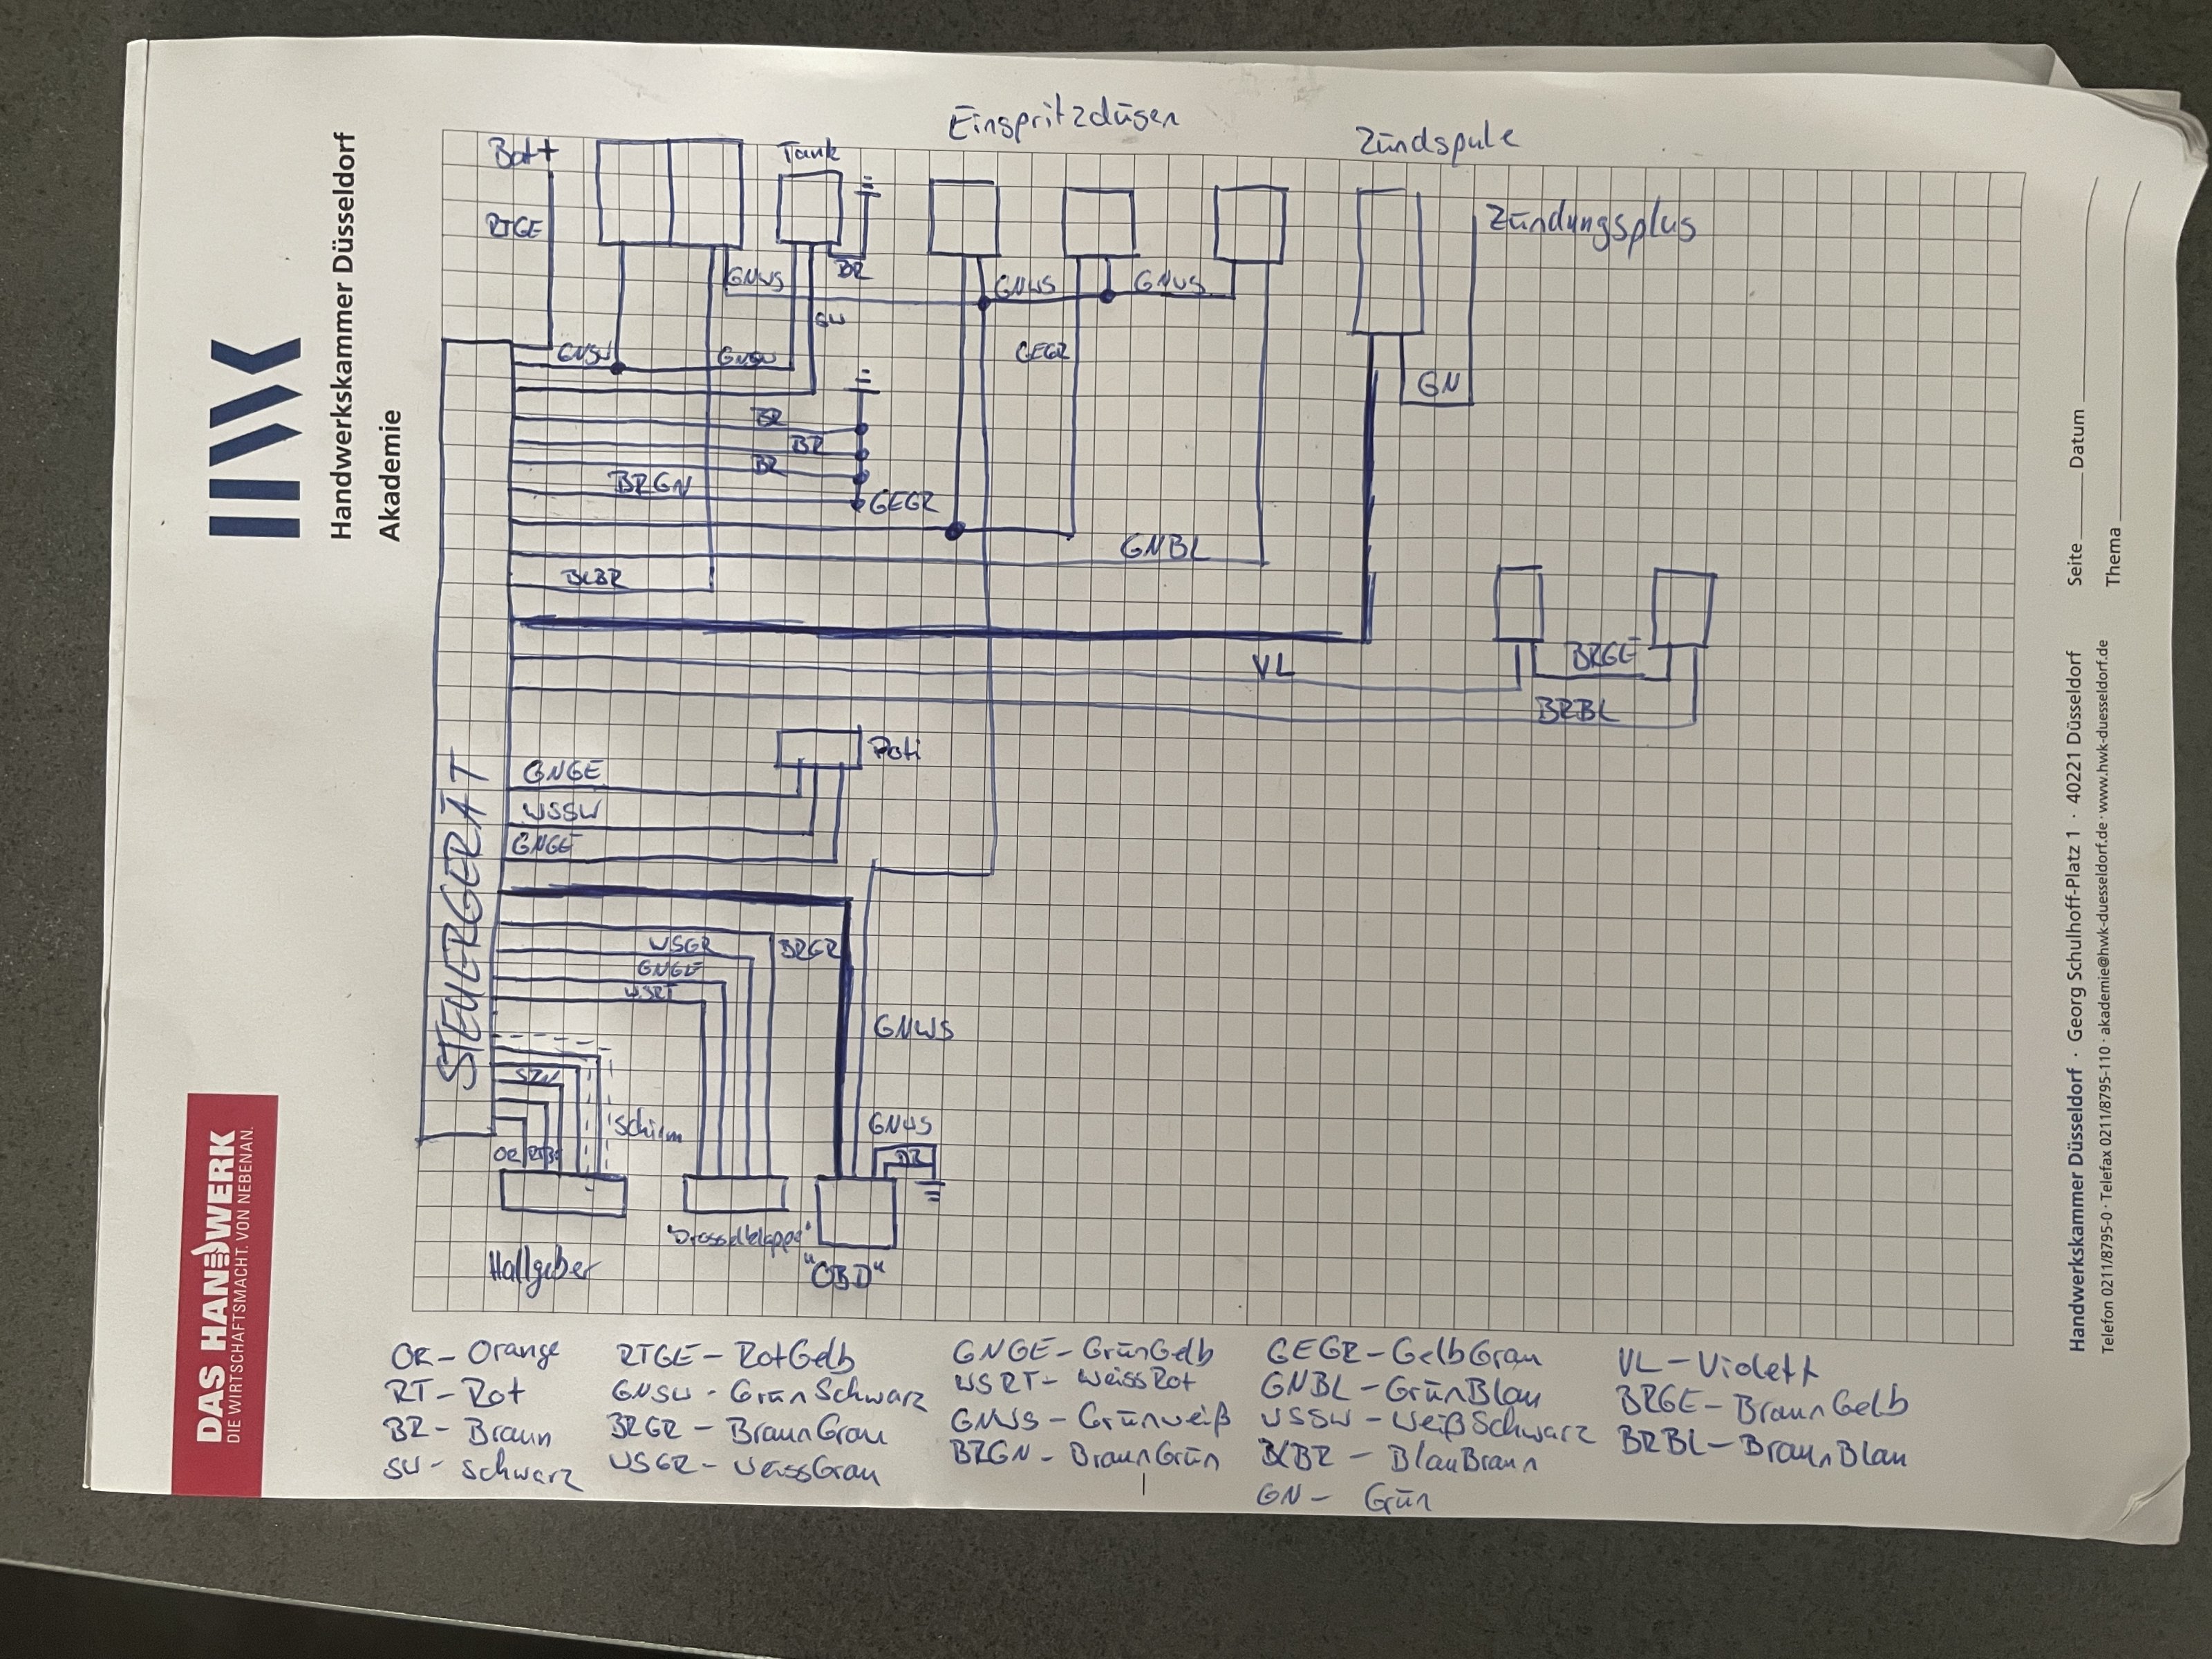 Handwerkskammer Düsseldorf
Akademie
DAS HANDWERK
DIE WIRTSCHAFTSMACHT. VON NEBENAN.
Einspritzdüsen
Zündspule
Batt
Tank
RTGE
Zündungsplus
BR
GNWS
GNWS
GNWS
SW
GNSW
GNSW
GEGR
GN
BR
BR
BR
BRGN
GEGR
GNBL
BLBR
VL
BRGE
BRBL
Poti
GNGE
WSSW
GNGE
STEUERGERÄT
WSGR
BRGR
GNGE
WSRT
GNWS
Schirm
GNWS
OR
BR
Hallgeber
"Drosselklappe"
"OBD"
OR - Orange
RT - Rot
BR - Braun
SW - Schwarz
RTGE - RotGelb
GNSW - GrünSchwarz
BRGR - BraunGrau
WSGR - WeissGrau
GNGE - GrünGelb
WSRT - WeissRot
GNWS - Grünweiß
BRGN - BraunGrün
GEGR - GelbGrau
GNBL - GrünBlau
WSSW - WeißSchwarz
BLBR - BlauBraun
GN - Grün
VL - Violett
BRGE - BraunGelb
BRBL - BraunBlau
Seite Datum
Thema
Handwerkskammer Düsseldorf · Georg Schulhoff-Platz 1 · 40221 Düsseldorf
Telefon 0211/8795-0 · Telefax 0211/8795-110 · akademie@hwk-duesseldorf.de · www.hwk-duesseldorf.de